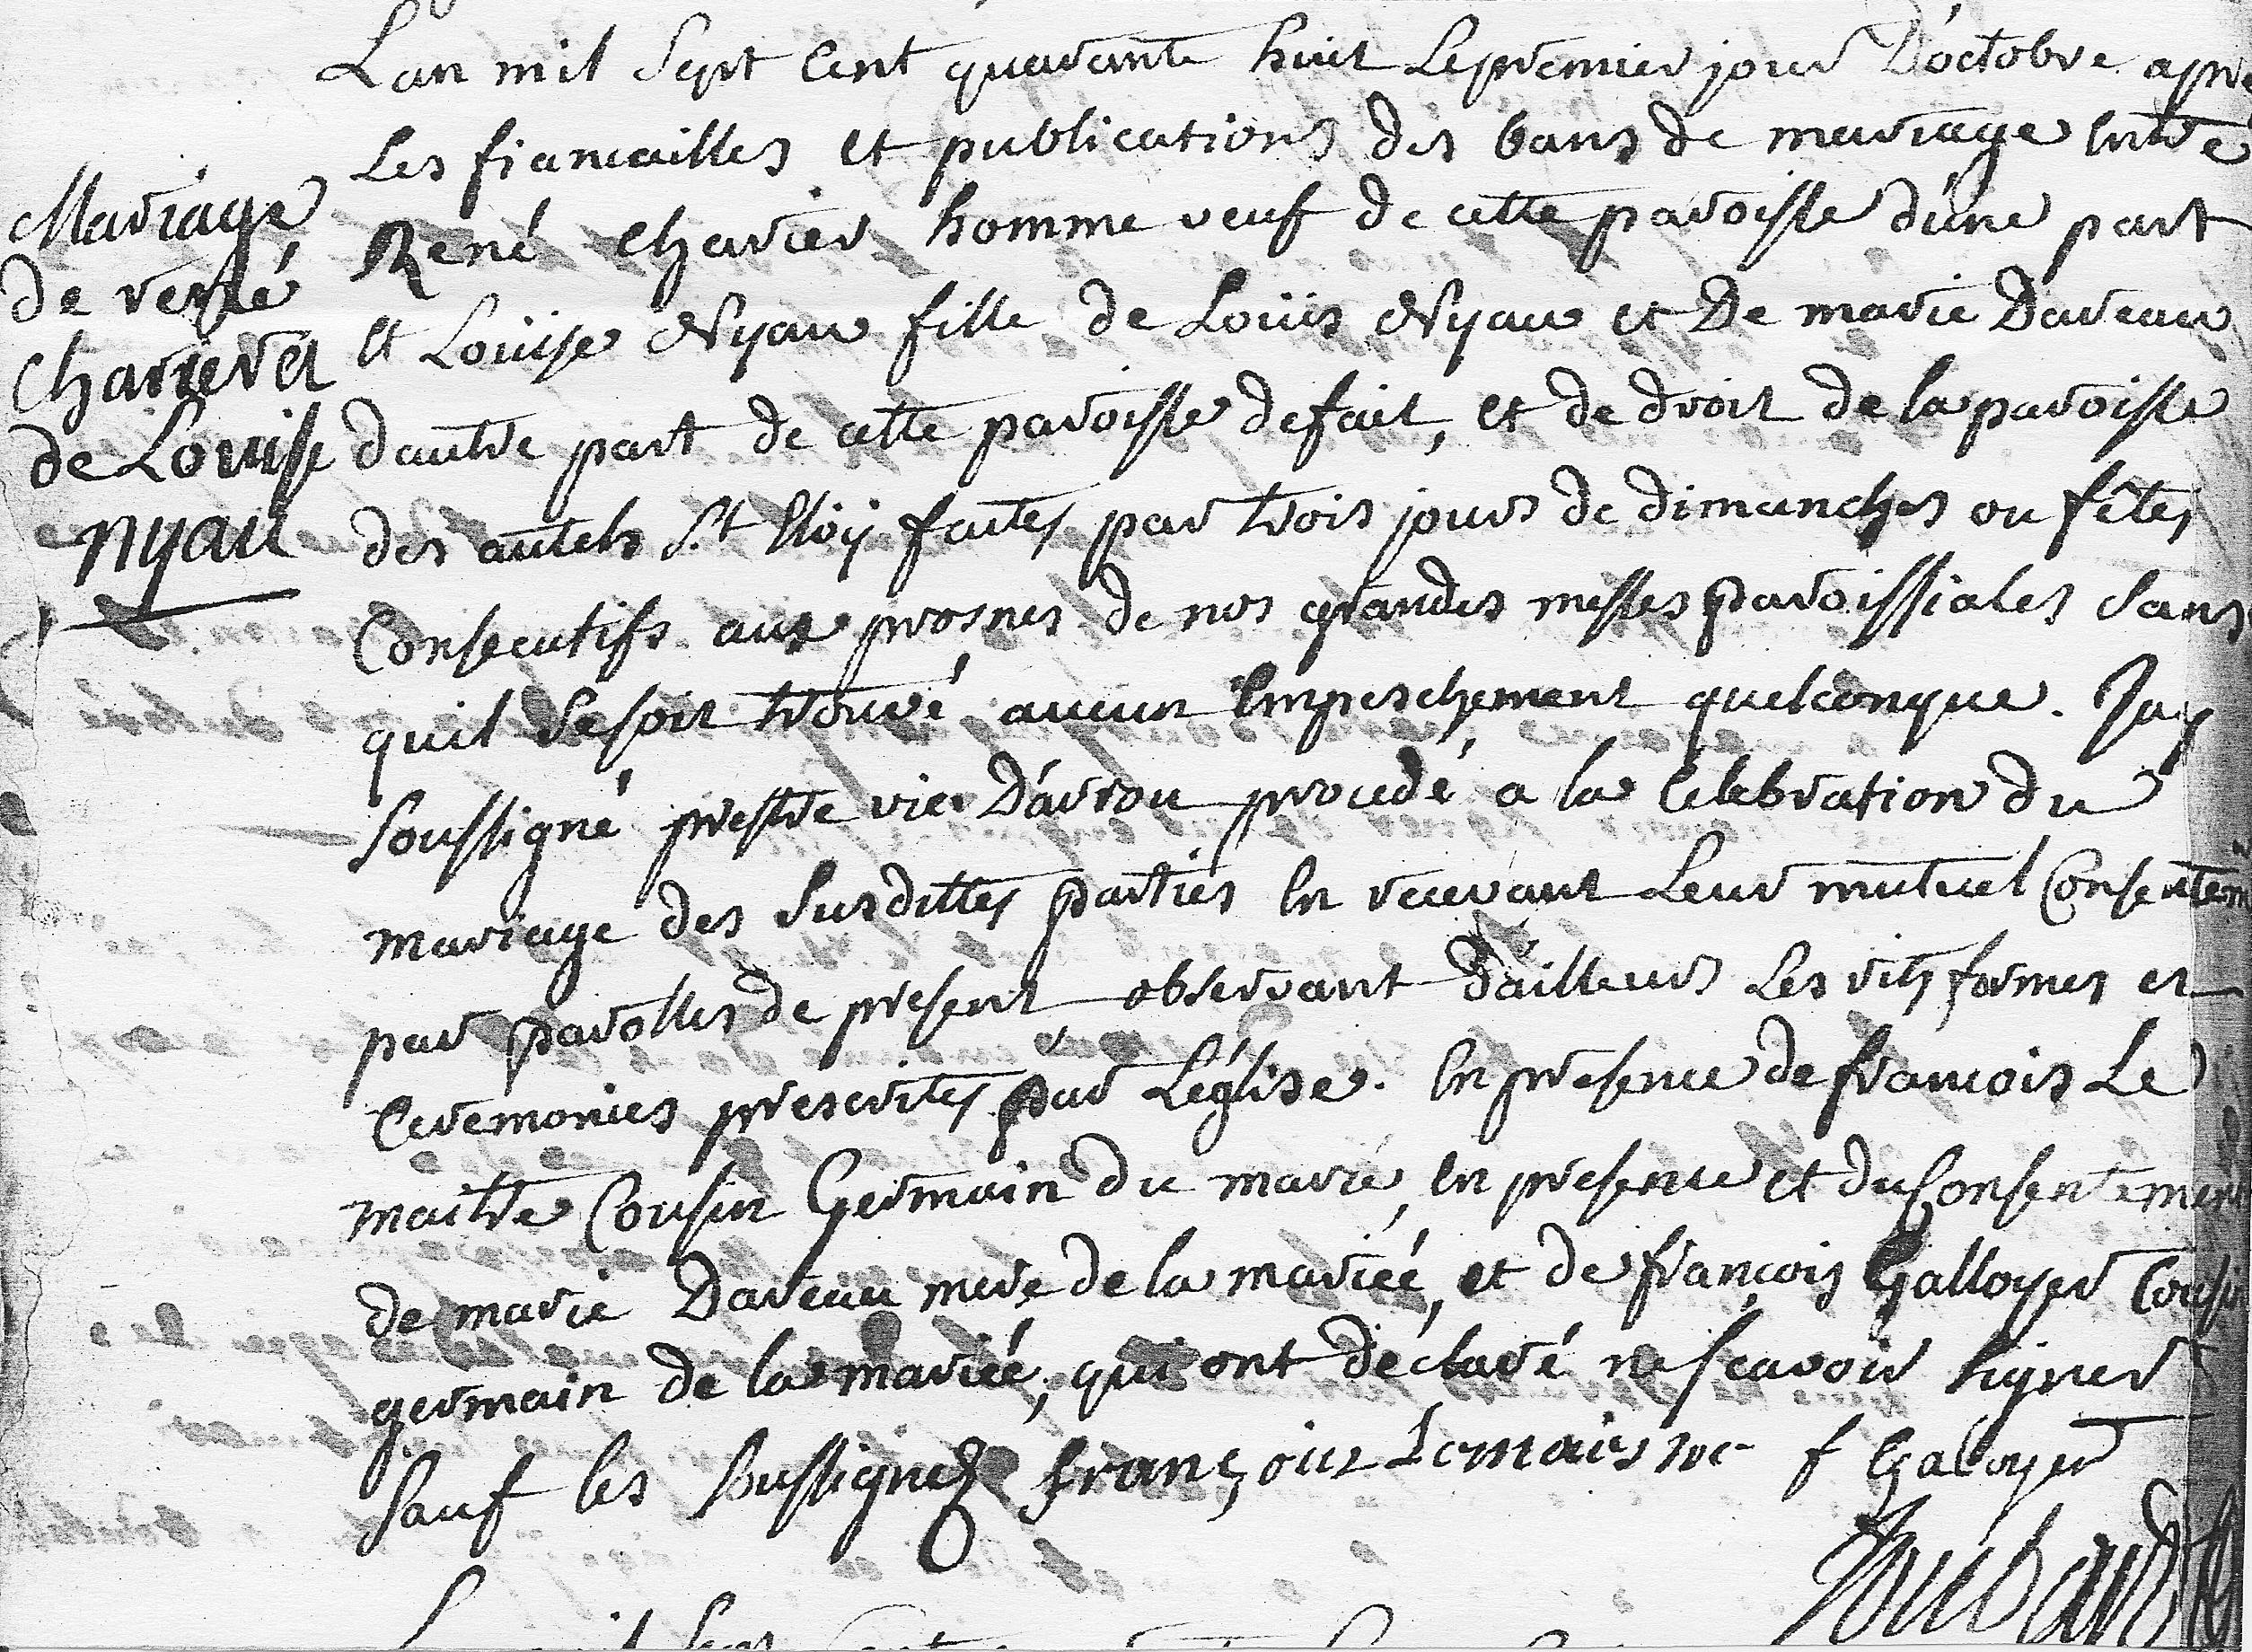 Lan mil sept cent quarante huit le premier jour D'octobre apre
Les fiancailles et publications des bans de mariage entre
René charier homme veuf de cette paroisse d'úne part
et Loüise Nyau fille de Loüis Nyau et De marie Daveau
dautre part de cette paroisse de fait, et de droit de la paroisse
des autels St Eloÿ faites par trois jours de dimanches ou fêtes
Consecutifs aux prosnes de nos grandes messes paroissiales sans
quil se soit trouvé aucun Empeschement quelconque. Jay
soussigné prestre vic. D'avrou procedé a la Celebration du
mariage des susdittes parties en recevant Leur mutuel Consentem
par parolles de present observant d'ailleurs Les rits formes et
Ceremonies prescrites par L'église. En presence de francois Le
maitre Cousin Germain du marié, en presence et du Consentement
de marie Daveau mere de la mariée, et de françois Galloyer Cousin
germain de la mariée, qui ont déclaré ne scavoir signer
sauf les sussignez françois Lemais tre f Galoyer
Mariage
de rené
charier et
de Louise
nyau